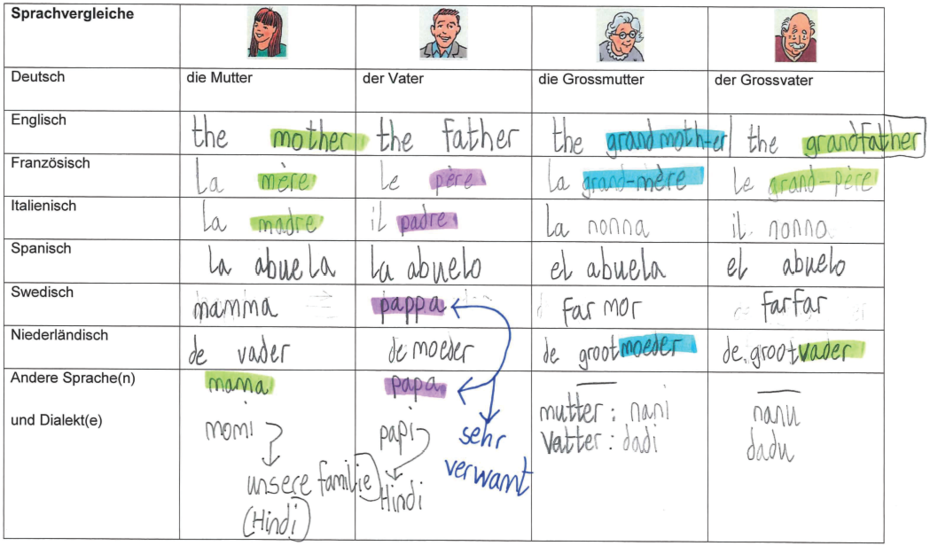 Sprachvergleiche
Deutsch die Mutter der Vater die Grossmutter der Grossvater
Englisch the mother the father the grandmoth-er the grandfather
Französisch La mère Le père La grand-mère Le grand-père
Italienisch La madre il padre La nonna il nonno
Spanisch La abuela La abuelo el abuela el abuelo
Swedisch mamma pappa far mor farfar
Niederländisch de vader de moeder de grootmoeder de grootvader
Andere Sprache(n) mama papa
und Dialekt(e) momi papi mutter: nani nanu
sehr vatter: dadi dadu
verwamt
unsere familie Hindi
(Hindi)